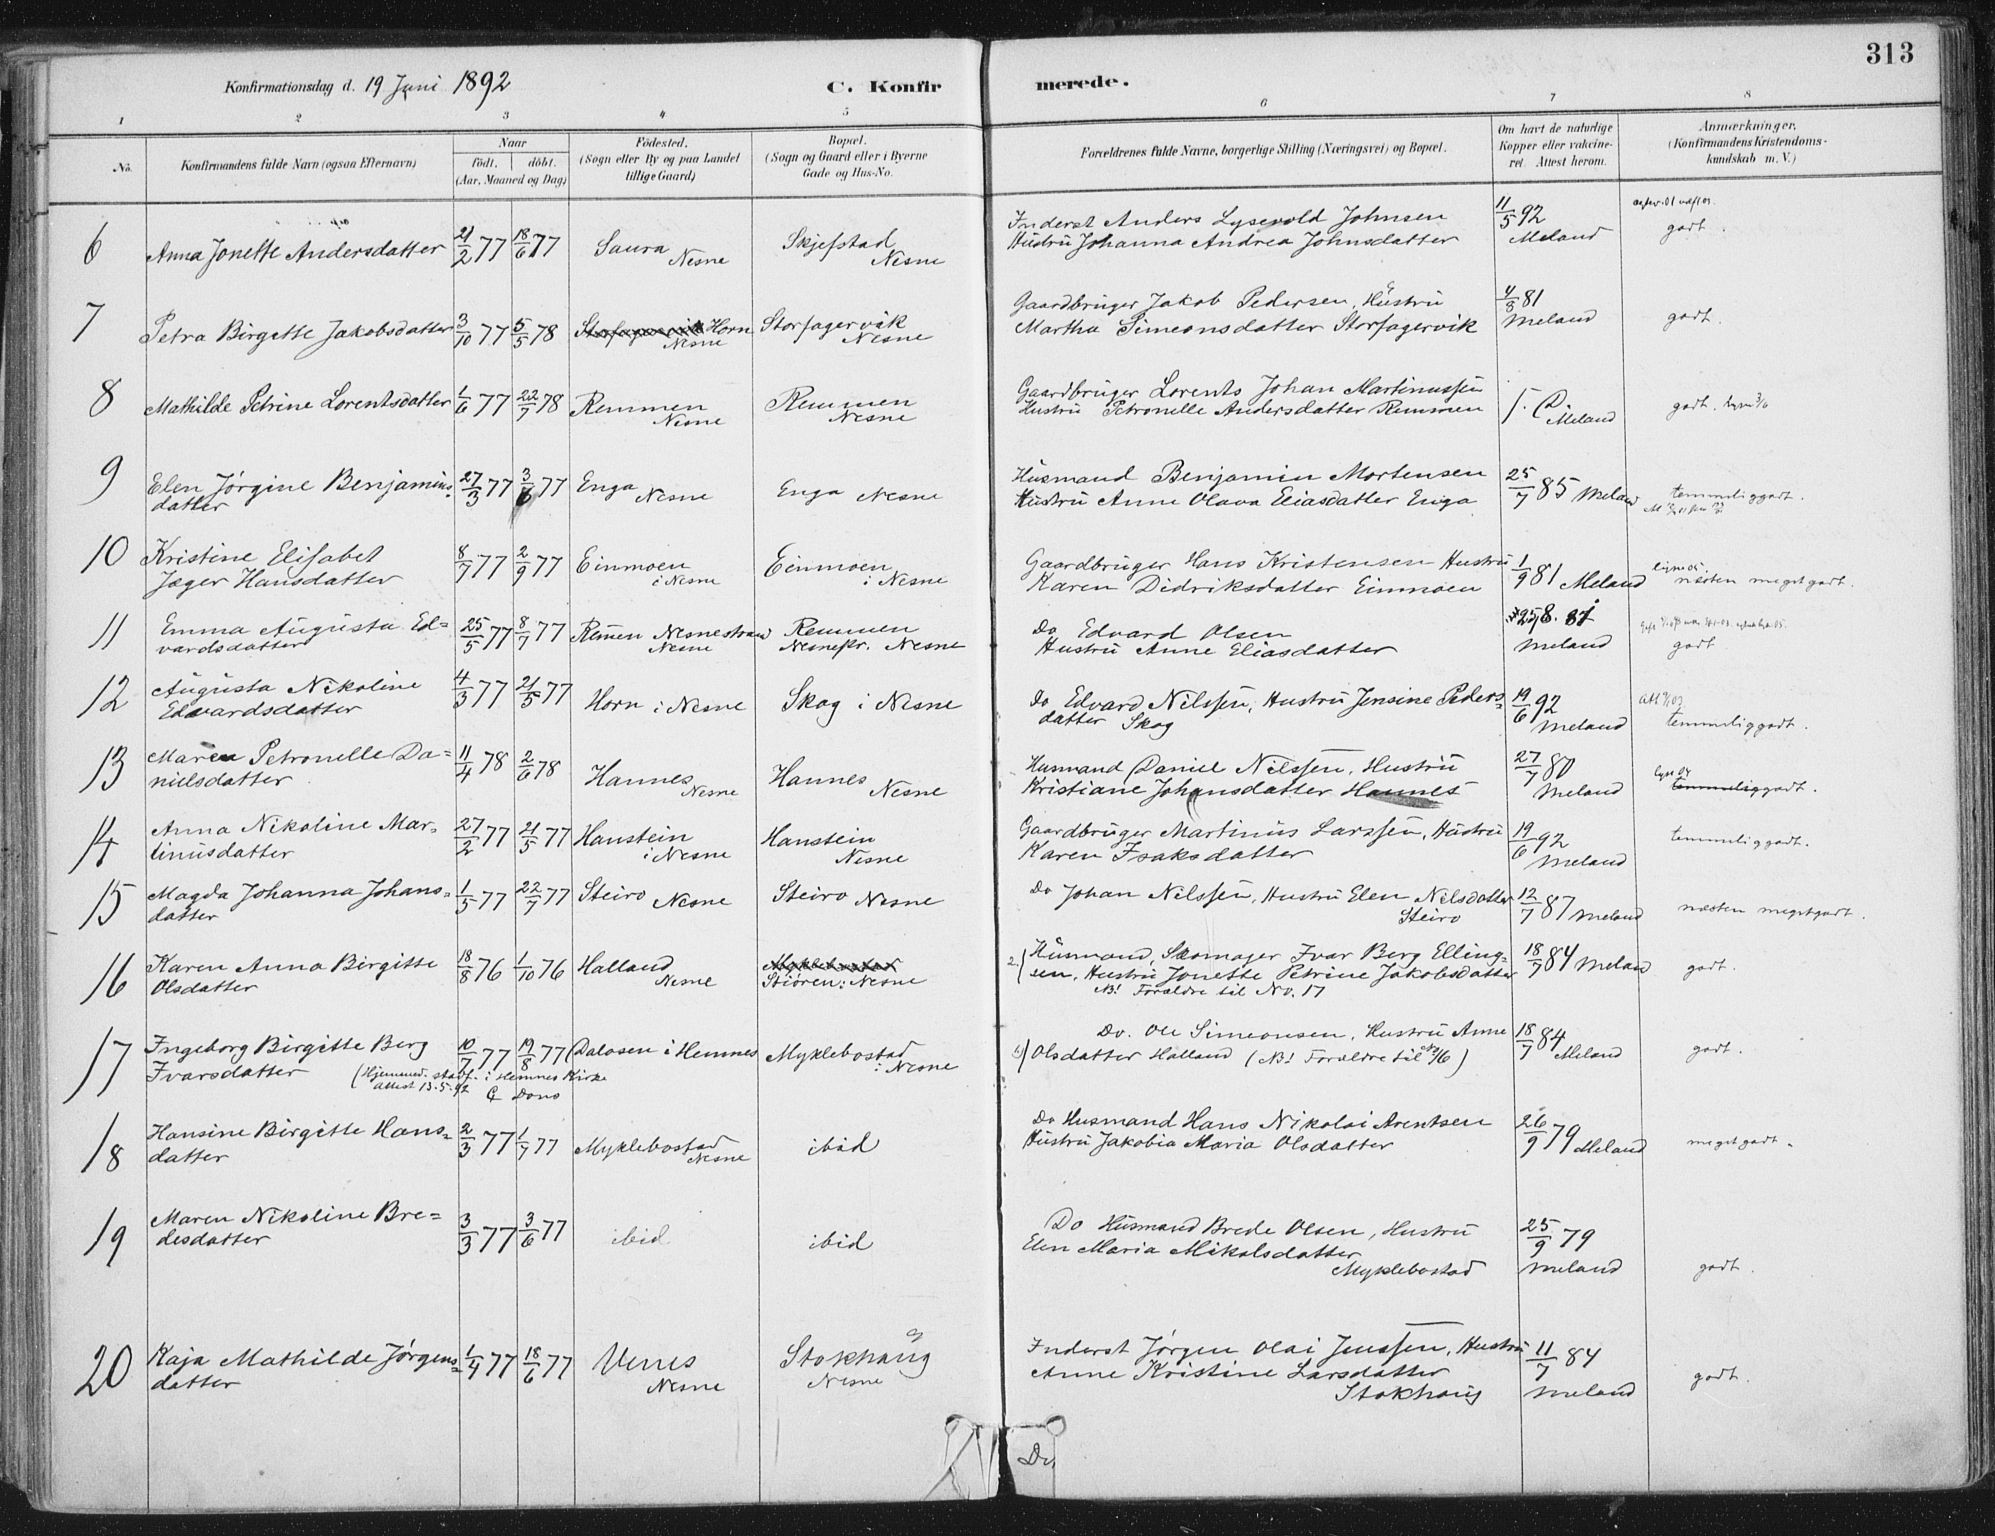 313
Konfirmationsdag d. 19 Juni 1892 C. Konfirmerede.
1 2 3 4 5 6 7 8
No. Konfirmandens fulde Navn (ogsaa Efternavn)
Naar født, døbt. (Aar, Maaned og Dag)
Fødested. (Sogn eller By og paa Landet tillige Gaard)
Bopæl. (Sogn og Gaard eller i Byerne Gade og Hus-No.
Forældrenes fulde Navne, borgerlige Stilling (Næringsvei) og Bopæl.
Om havt de naturlige Kopper eller vakcineret. Attest herom.
Anmærkninger, (Konfirmandens Kristendomskundskab m. V.)
6 Anna Jonette Andersdatter 21/2 77 18/6 77 Saura Nesne Skjefstad Nesne
Inderst Anders Lysevold Johnsen 11/5 92
Hustru Johanna Andrea Johnsdatter Meland godt.
7 Petra Birgitte Jakobsdatter 3/10 77 5/5 78 Horn Nesne Storfagervik Nesne
Gaardbruger Jakob Pedersen, Hustru 4/3 81
Martha Simeonsdatter Storfagervik Meland godt.
8 Mathilde Petrine Lorentsdatter 1/6 77 22/7 78 Remmen Nesne Remmen Nesne
Gaardbruger Lorents Johan Martinussen
Hustru Petronelle Andersdatter Remmen Meland godt.
9 Elen Jørgine Benjamins- 27/3 77 3/6 77 Enga Nesne Enga Nesne
datter
Husmand Benjamin Mortensen 25/7 85 Meland
Hustru Anne Olava Eliasdatter Enga temmeliggodt.
10 Kristine Elisabet 8/7 77 2/9 77 Einmoen i Nesne Einmoen i Nesne
Jæger Hansdatter
Gaardbruger Hans Kristensen Hustru 1/9 81 Meland
Karen Didriksdatter Einmoen næsten megetgodt.
11 Emma Augusta Ed= 25/5 77 8/7 77 Remen Nesnestrand Nesne Remmen
vardsdatter Nesnestr. Nesne
Do Edvard Olsen
Hustru Anne Eliasdatter Meland godt
12 Augusta Nikoline 4/3 77 21/5 77 Horn i Nesne Skog i Nesne
Edvardsdatter
Do Edvard Nilssen, Hustru Jensine Peders= 19/6 92
datter Skog Meland temmeliggodt.
13 Maren Petronelle Da= 11/4 78 2/6 78 Hannes Nesne Hannes Nesne
nielsdatter
Husmand Daniel Nilssen, Hustru 27/7 80
Kristiane Johansdatter Hannes Meland temmeliggodt.
14 Anna Nikoline Mar= 27/2 77 21/5 77 Hanstein i Nesne Hanstein Nesne
tinusdatter
Gaardbruger Martinus Larssen, Hustru 19/6 92
Karen Isaksdatter Meland temmeliggodt.
15 Magda Johanna Johans= 1/5 77 22/7 77 Steiro Nesne Steiro Nesne
datter
Do Johan Nilssen, Hustru Elen Nilsdatter 12/7 87 Meland
Steiro næsten megetgodt.
16 Karen Anna Birgitte 18/8 76 1/10 76 Halland Nesne Myklebostad
Olsdatter Nesne
2) Husmand, Skomager Ivar Berg Elling= 18/7 84 Meland
sen, Hustru Jonette Petrine Jakobsdatter godt.
NB! Forældre til No. 17
17 Ingeborg Birgitte Berg 10/7 77 19/8 77 Dalosen i Hemnes Myklebostad i Nesne
Ivarsdatter (Hjemmed. stadf. i Hemnes Kirke
attest 13.5.92
Do. Ole Simeonsen, Hustru Anne 18/7 84
1) Olsdatter Halland (NB! Forældre til No 16) Meland godt.
18 Hansine Birgitte Hans= 2/3 77 1/7 77 Myklebostad Nesne ibid
datter
Do Husmand Hans Nikolai Arentsen 26/9 79 Meland
Hustru Jakobia Maria Olsdatter megetgodt.
19 Maren Nikoline Bre= 3/3 77 3/6 77 ibid ibid
desdatter
Do Husmand Brede Olsen, Hustru 25/9 79
Elen Maria Mikalsdatter
Myklebostad Meland godt.
20 Kaja Mathilde Jørgens= 1/4 77 18/6 77 Venes Nesne Stokhaug Nesne
datter
Inderst Jørgen Olai Jenssen, Hustru 11/7 84
Anne Kristine Larsdatter
Stokhaug Meland godt.
Do.